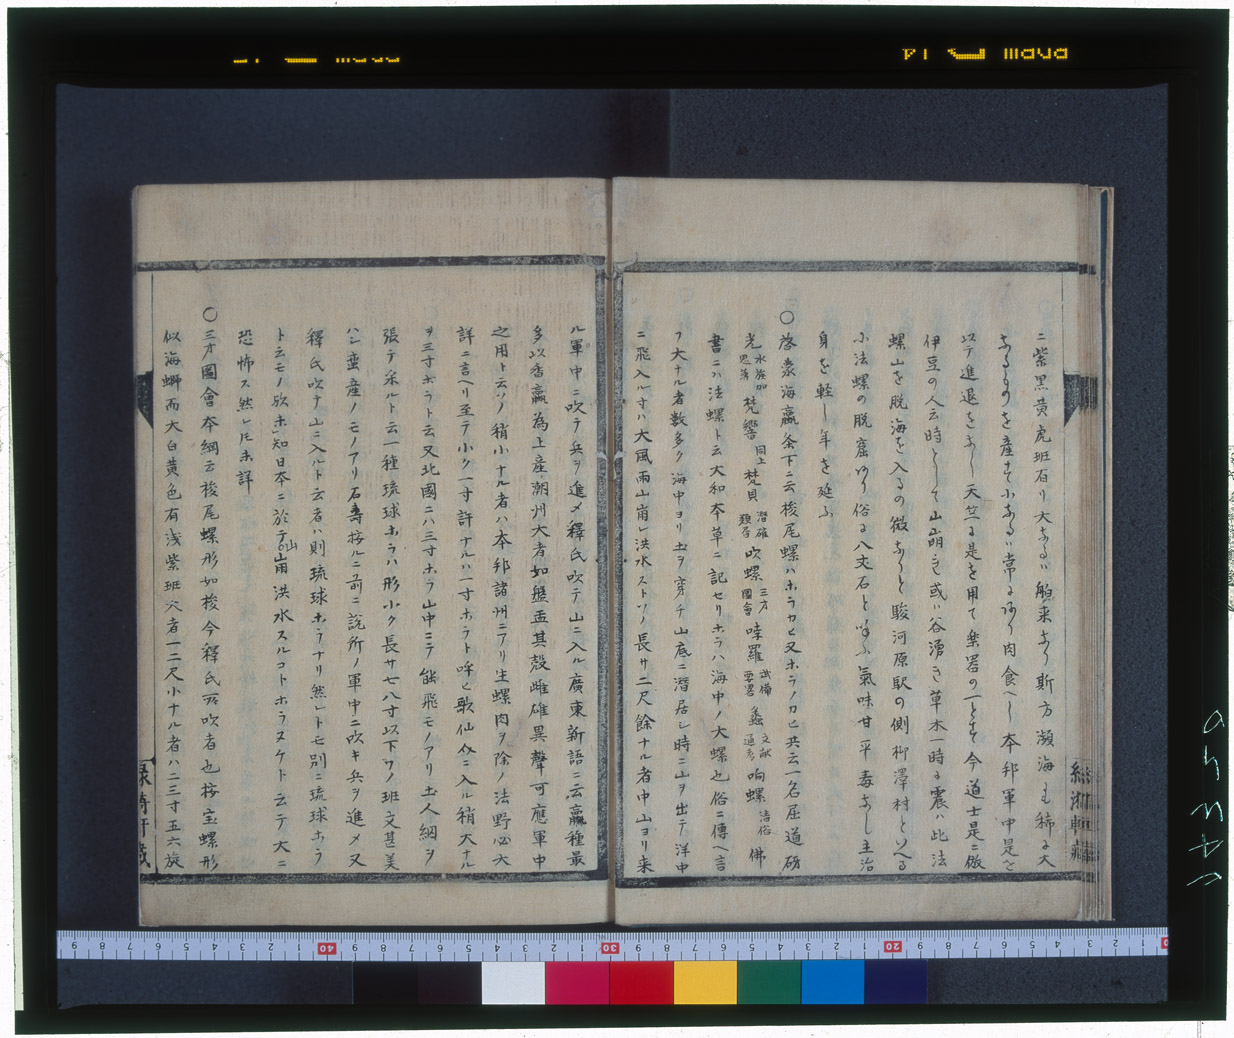 ニ紫黒黄虎班石リ大なるハ舶来あり斯方瀕海も稀に大
なるものを産す小なるハ常にあり肉食へし本邦軍中是を
以テ進退をなし天竺に是を用て楽器の一とす今道士是に倣
伊豆の人云時として山崩るゝ或ハ谷湧き草木一時に震ハ此法
螺山を脱海を入るの徴なりと駿河原駅の側柳澤村といへる
小法螺の脱窟あり俗に八丈石と呼ふ氣味甘平毒なし主治
身を軽し年を延ふ
○啓蒙海蠃条下ニ云梭尾螺ハホラカヒ又ホラノカヒ共云一名屈道砺
光 水族加恩簿 梵響 同上 梵貝 潜確類書 吹螺 三才圖會 哱羅 武備要畧 蠡 文献通考 响螺 清俗 佛
書ニハ法螺ト云大和本草ニ記セリホラハ海中ノ大螺也俗ニ傳ヘ言
フ大ナル者数多ク海中ヨリ土ヲ穿チ山底ニ潜居シ時ニ山ヲ出テ洋中
ニ飛入ル寸ハ大風雨山崩レ洪水ストソノ長サ二尺餘ナル者中山ヨリ来
ル軍中ニ吹テ兵ヲ進メ釋氏吹テ山ニ入ル廣東新語ニ云蠃種最
多以香蠃為上産潮州大者如盤盂其殻雌雄異聲可應軍中
之用ト云ソノ稍小ナル者ハ本邦諸州ニアリ生螺肉ヲ除ノ法野必大
詳ニ言ヘリ至テ小ク一寸許ナルハ一寸ホラト呼ヒ歌仙介ニ入ル稍大ナル
ヲ三寸ホラト云又北國ニハ三寸ホラ山中ニテ能飛モノアリ土人網ヲ
張テ采ルト云一種琉球ホラハ形小ク長サ七八寸以下ソノ班文甚美
ハシ蛮産ノモノアリ石壽按ルニ前ニ説所ノ軍中ニ吹キ兵ヲ進メ又
釋氏吹テ山ニ入ルト云者ハ則琉球ホラナリ然レトモ別ニ琉球ホラ
ト云モノ欤未知日本ニ於テ山崩洪水スルコトホラヌケト云テ大ニ
恐怖ス然レ𪜈未詳
○三才圖會本綱云梭尾螺形如梭今釋氏所吹者也按宝螺形
似海螄而大白黄色有浅紫班穴者一二尺小ナル者ハ二三寸五六旋